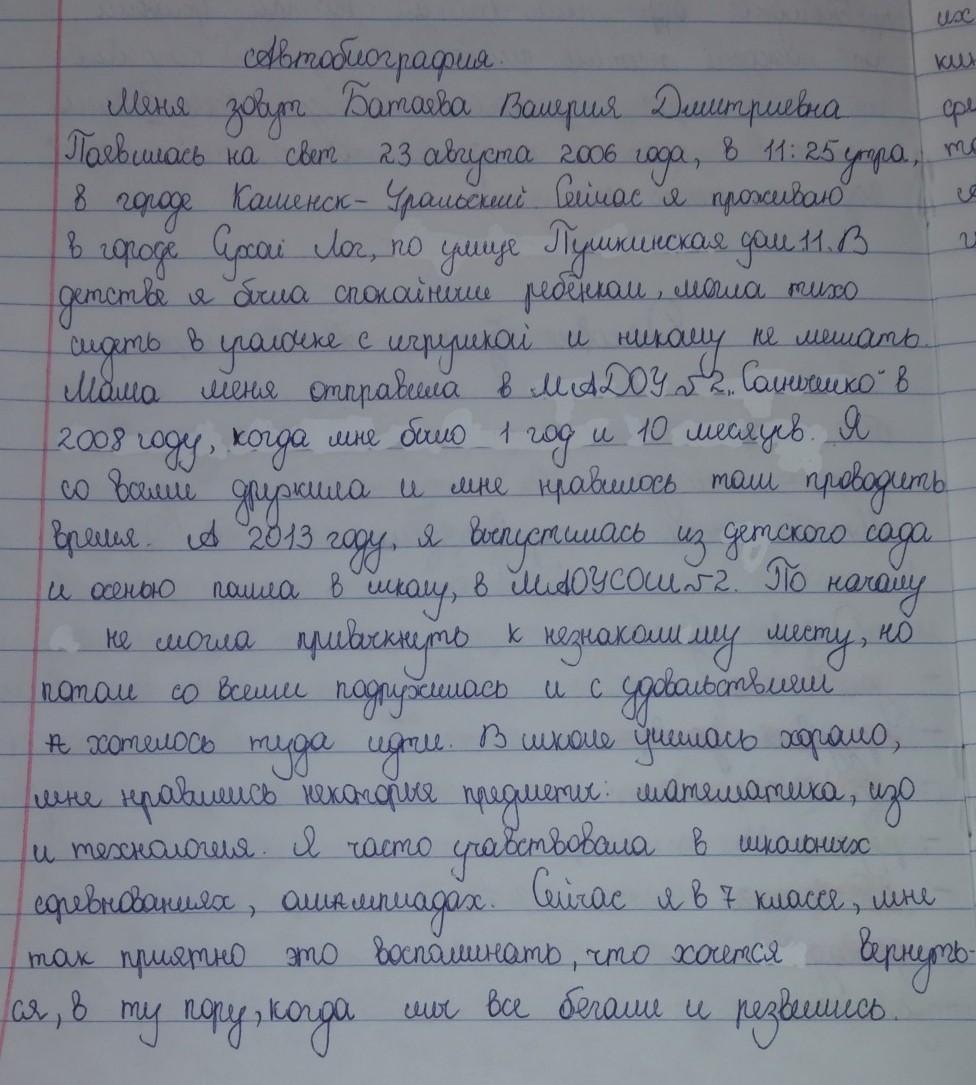 Автобиография.
Меня зовут Батаева Валерия Дмитриевна
Паявилась на свет 23 августа 2006 года, в 11:25 утра,
в городе Каменск-Уральский Сейчас я проживаю
в городе Сухой Лог, по улице Пушкинская дом 11. В
детстве я была спокойным ребёнком, могла тихо
сидеть в уголочке с игрушкой и никому не мешать.
Мама меня отправила в МАДОУ №2 „Солнышко" в
2008 году, когда мне было 1 год и 10 месяцев. Я
со всеми дружила и мне нравилось там проводить
время. А 2013 году, я выпустилась из детского сада
и осенью пошла в школу, в МАОУСОШ №2. По началу
не могла привыкнуть к незнакомиму месту, но
потом со всеми подружилась и с удовольствием
хотелось туда идти. В школе училась хорошо,
мне нравились некоторые предметы: математика, изо
и технология. Я часто учавствовала в школьных
соревнованиях, олимпиадах. Сейчас я в 7 классе, мне
так приятно это воспоминать, что хочется вернуть-
ся, в ту пору, когда мы все бегали и резвились.